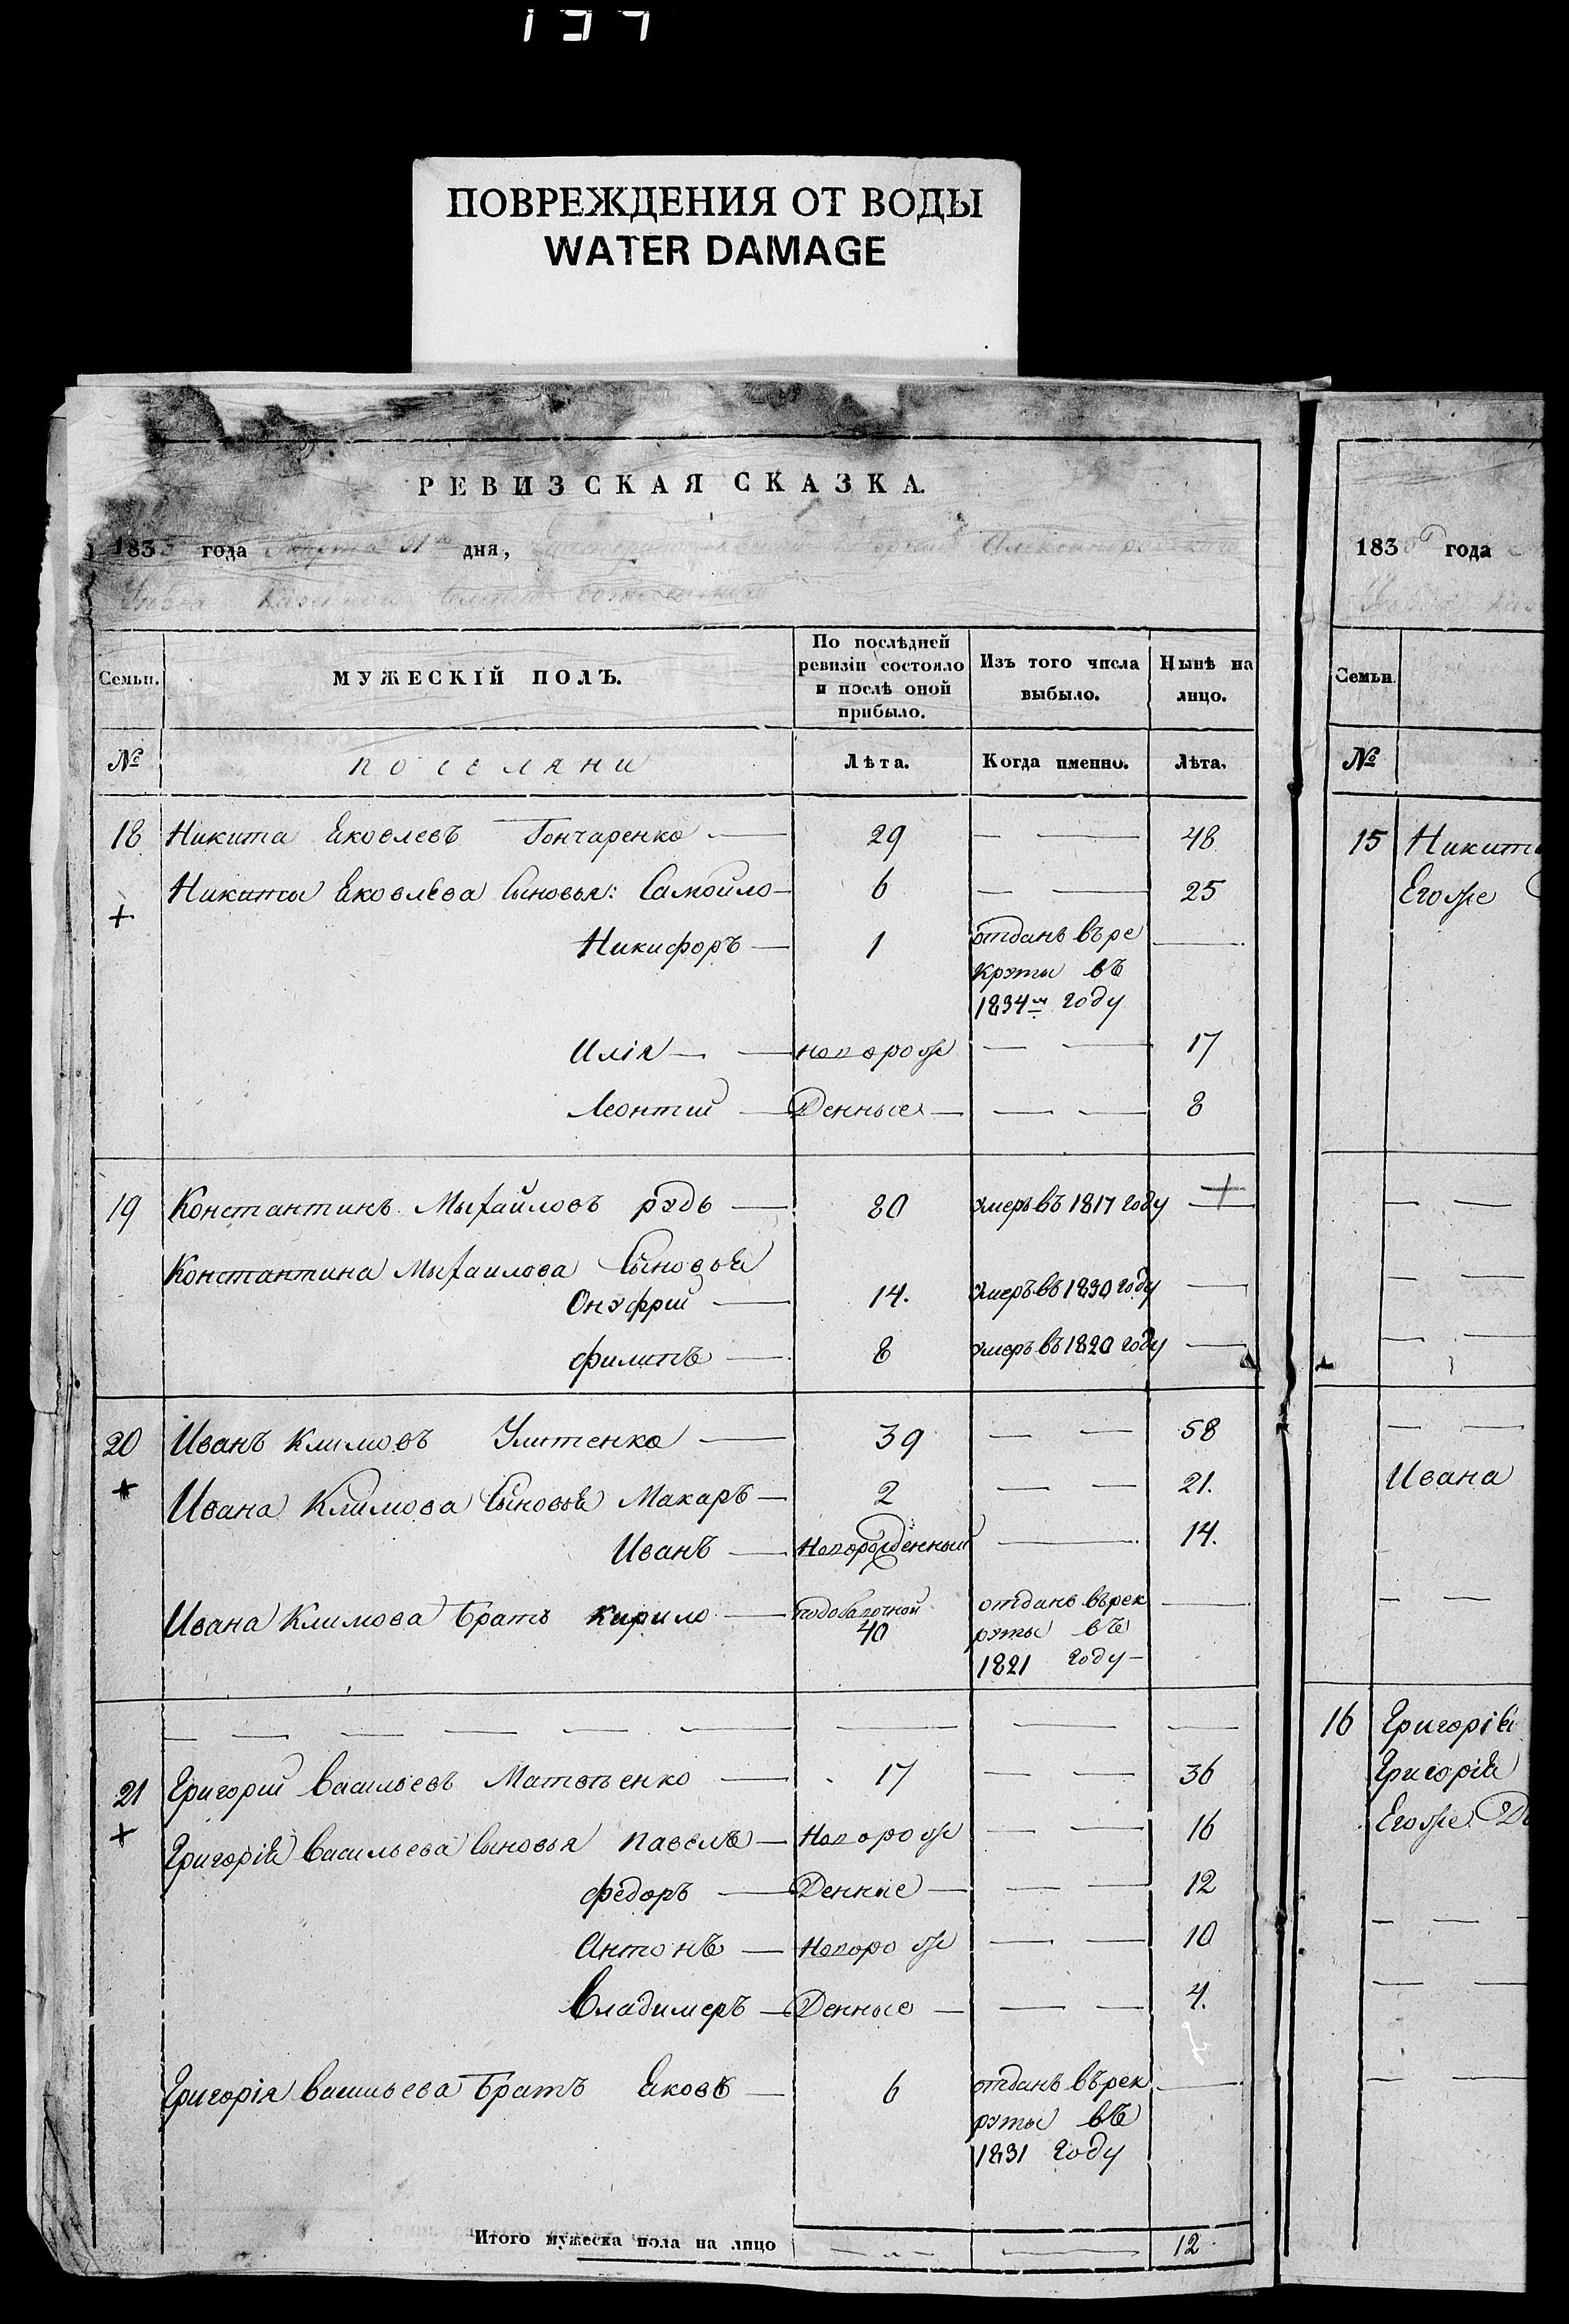 137
ПОВРЕЖДЕНИЯ ОТ ВОДЫ
WATER DAMAGE
РЕВИЗСКАЯ СКАЗКА.
183 года дня,
Семьи. МУЖЕСКІЙ ПОЛЪ. По послѣдней ревизіи состояло и послѣ оной прибыло. Изъ того числа выбыло. Нынѣ на лицо.
№ поселяни Лѣта. Когда именно. Лѣта.
18 Никита Яковлевъ Гончаренко 29 48
Никиты Яковлева Сыновья: Самойло 6 25
Никифоръ 1 отданъ въ ре
круты въ
1834м году
Илія новорож 17
Леонтий Денные 8
19 Константинъ Михайловъ рудь 80 умеръ въ 1817 году
Константина Михаилова Сыновья
Онуфрий 14. умеръ въ 1830 году
филипъ 8 умеръ въ 1820 году
20 Иванъ Климовъ Улитенко 39 58
Ивана Климова Сыновья Макаръ 2 21.
Иванъ Новорожденный 14.
Ивана Климова Братъ Кирило 40 отданъ в рек
руты въ
1821 году
21 Григорий Васильевъ 17 36
Григорія Васильева Сыновья павелъ Новорож 16
федоръ Денные 12
Антонъ Новорож 10
Владимеръ Денные 4.
Григорія Васильева Братъ Яковъ 6 отданъ в рек
руты въ
1831 году
Итого мужеска пола на лицо 12
183 года
Семьи
№
15 Никит
Егоже
Ивана
16 Григорія
Григорія
Егоже